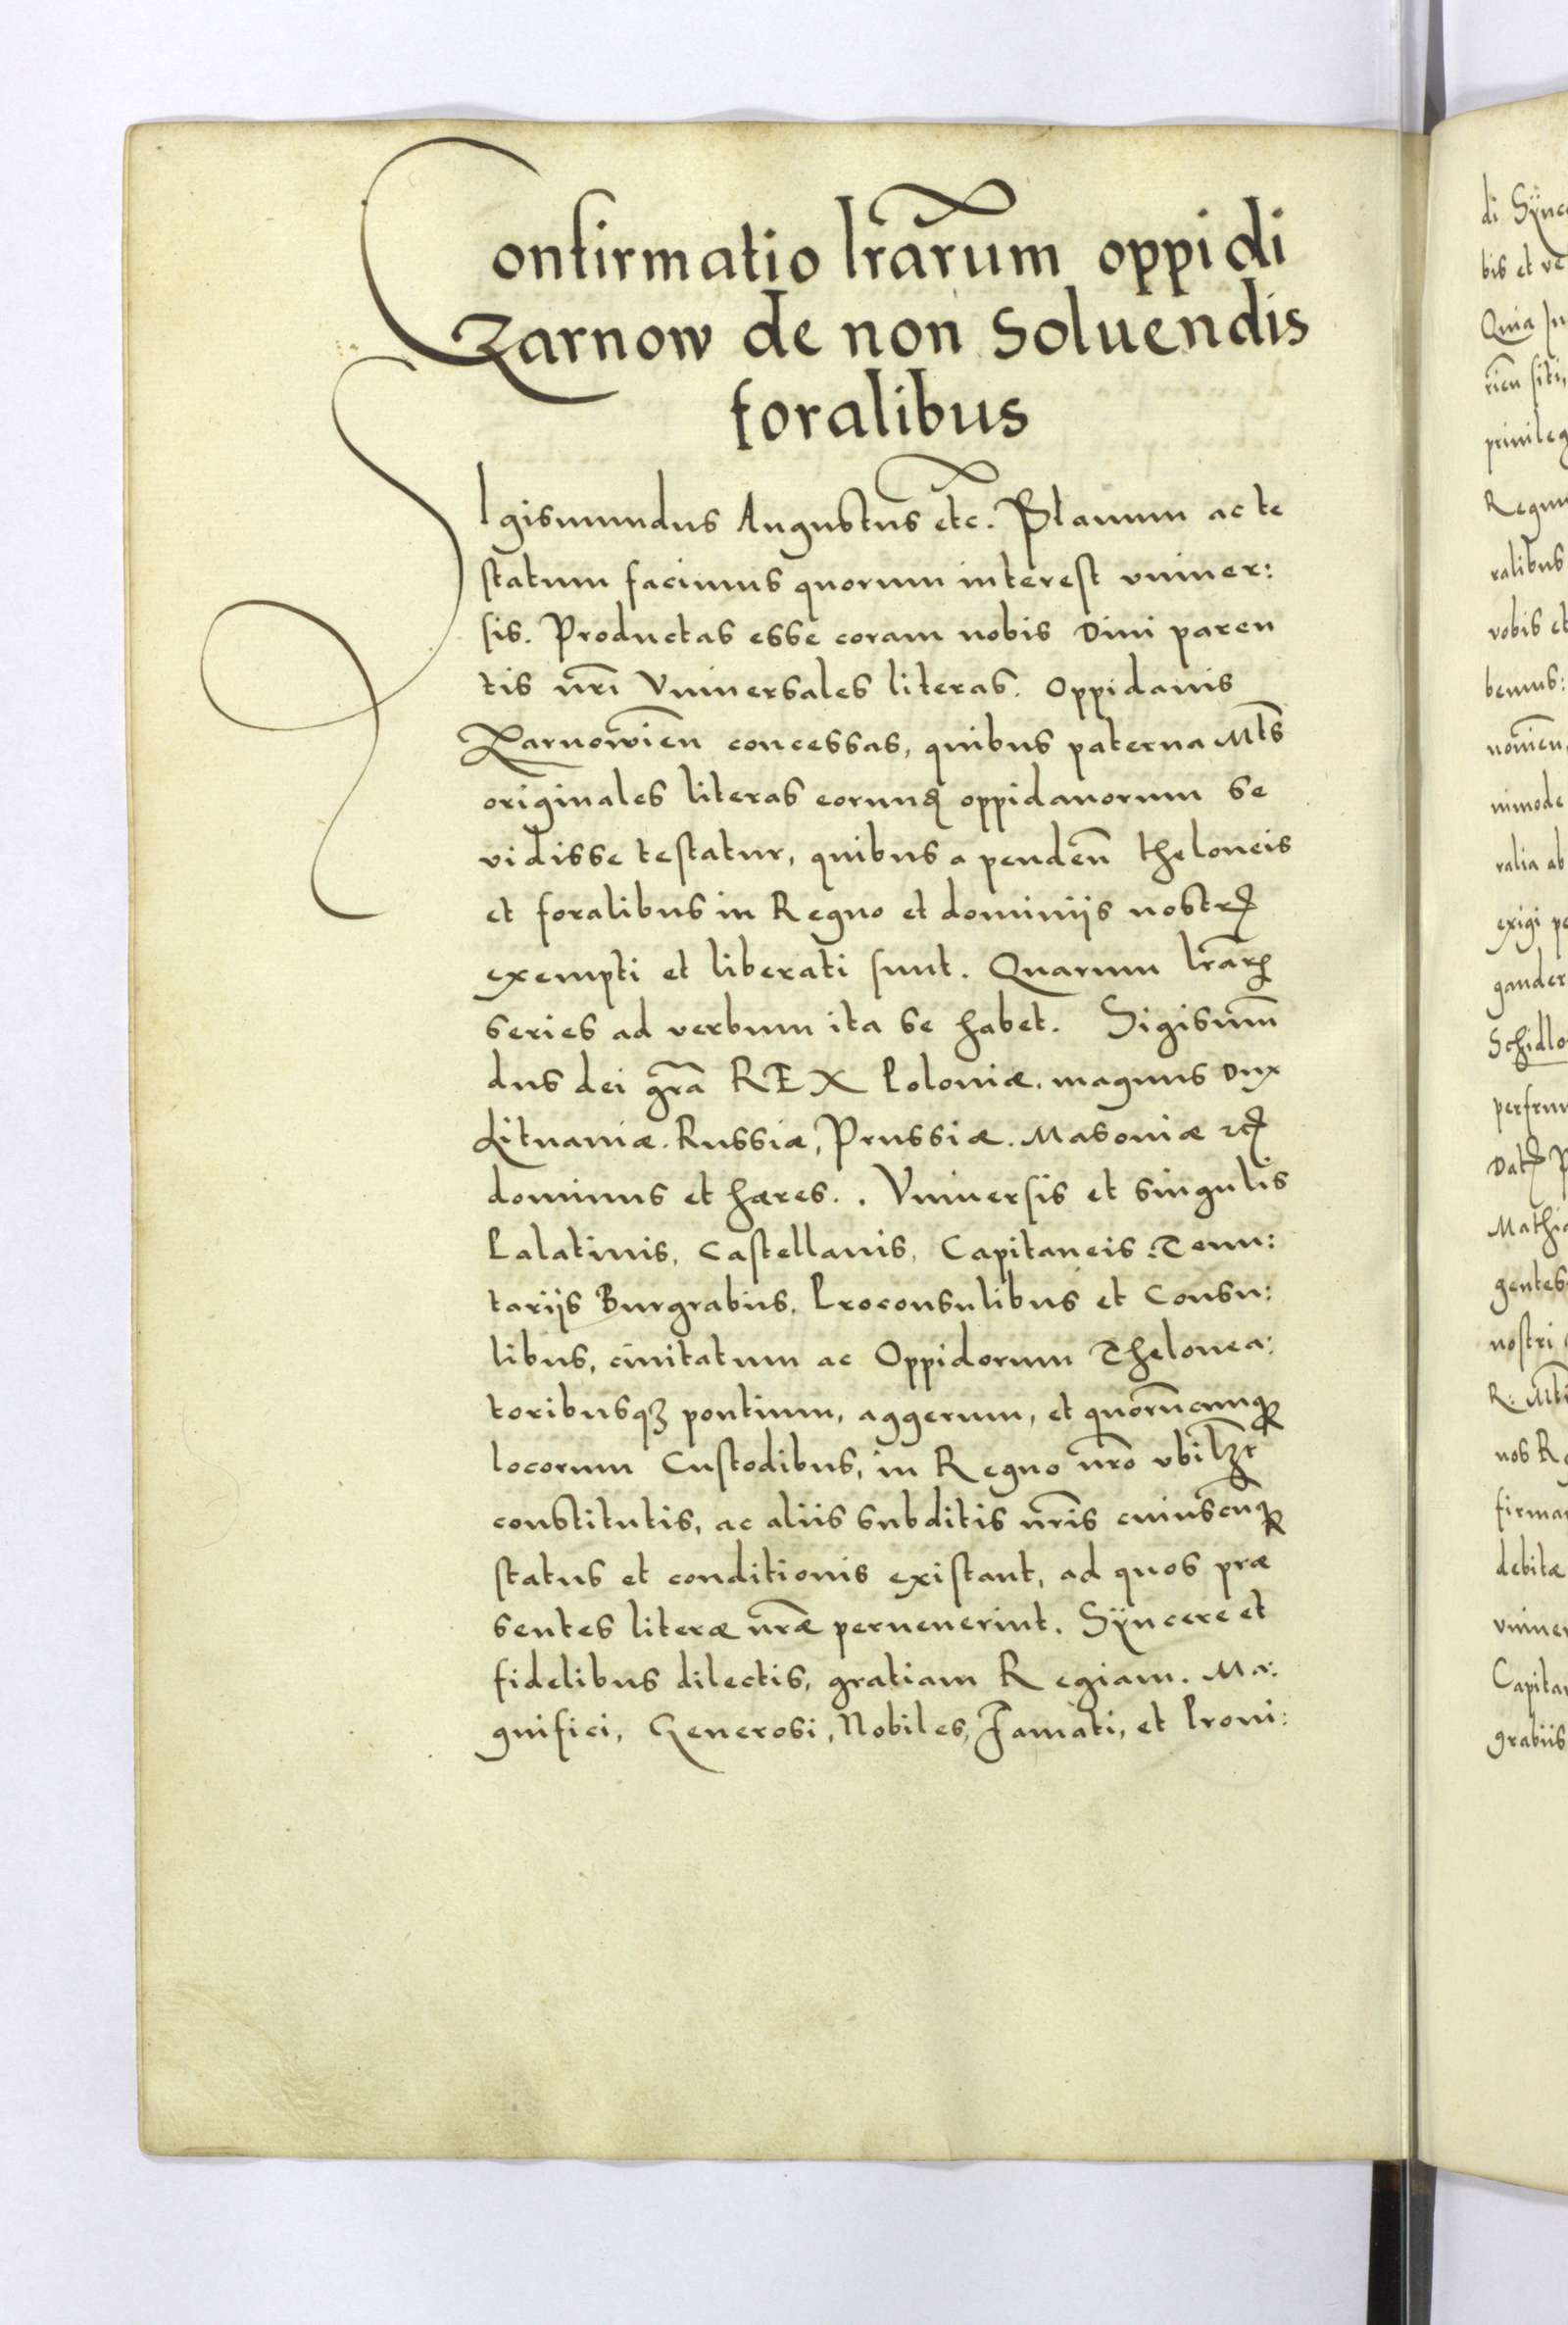 Confirmatio lr̃arum oppidi
Zarnow de non Soluendis
foralibus
SIgismundus Augustus etc. Planum ac te
statum facimus quorum interest vniuer:
sis. Productas esse coram nobis Diui paren
tis nr̃i Vniuersales literas. Oppidanis
Zarnowien̄ concessas, quibus paterna Mts̃
originales literas eorundꝫ oppidanorum se
vidisse testatur, quibus a penden̄ theloneis
et foralibus in Regno et dominijs nostrꝭ
exempti et liberati sunt. Quarum lr̃arꝝ
series ad verbum ita se habet. Sigismūn
dus dei gr̃a REX Poloniæ. magnus Dux
Lituaniæ. Russiæ, Prussiæ. Masouiæ ꝛcꝭ
dominus et hæres. . Vniuersis et singulis
Palatinis, Castellanis, Capitaneis. Tenu:
tarijs Burgrabiis. Proconsulibus et Consu:
libus, ciuitatum ac Oppidorum Thelonea:
toribusqꝫ pontium, aggerum, et quorūcunqꝫ
locorum Custodibus, in Regno nr̃o vbilꝫt
constitutis, ac aliis subditis nr̃is cuiuscūqꝫ
status et conditionis existant, ad quos præ
sentes literæ nr̃æ peruenerint. Sÿncere et
fidelibus dilectis, gratiam Regiam. Ma:
gnifici, Generosi, Nobiles, Famati, et Proui:
di Sÿnc
bis et ve
Quia
rien̄ siti,
priuileg
Regnu
ralibus
vobis et
bemus:
nowien̄,
nimode
ralia ab
exigi pe
gauder
Schidlo
perfru
Datꝭ P
Mathia
gentes
nostri
R: Mt
nos R
firma
debitæ
vniuer
Capita
grabiis